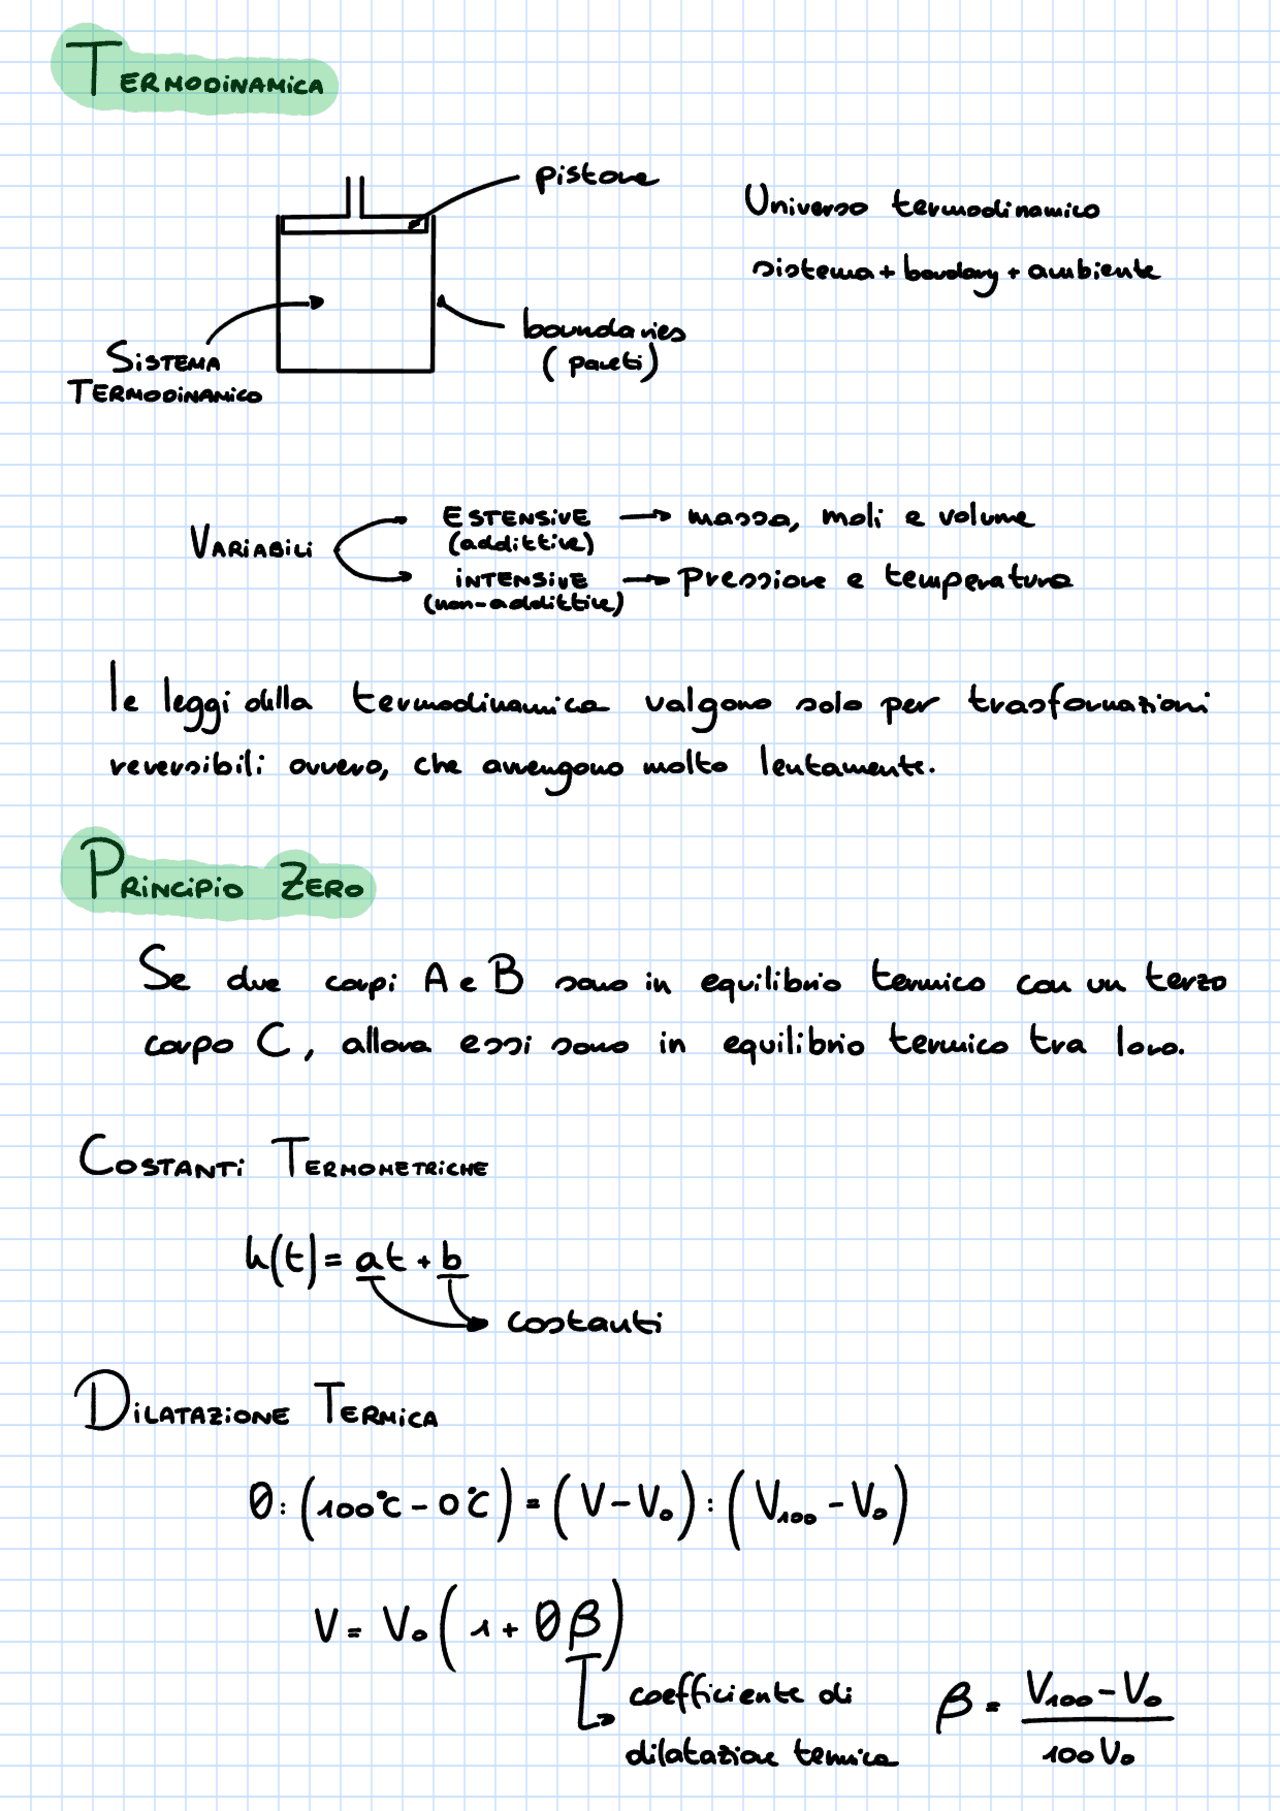 TERMODINAMICA
pistone
Universo termodinamico
sistema + boundary + ambiente
boundaries
(pareti)
SISTEMA
TERMODINAMICO
VARIABILI
ESTENSIVE → massa, moli e volume
(addittive)
INTENSIVE → Pressione e temperatura
(non-addittive)
le leggi della termodinamica valgono solo per trasformazioni
reversibili ovvero, che avvengono molto lentamente.
PRINCIPIO ZERO
Se due corpi A e B sono in equilibrio termico con un terzo
corpo C, allora essi sono in equilibrio termico tra loro.
COSTANTI TERMOMETRICHE
h(t) = at + b
costanti
DILATAZIONE TERMICA
θ : (100°C - 0°C) = (V - V₀) : (V₁₀₀ - V₀)
V = V₀ (1 + θβ)
coefficiente di
dilatazione termica
β = (V₁₀₀ - V₀) / 100 V₀